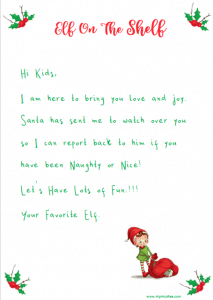 Elf On The Shelf
Hi Kids,
I am here to bring you love and joy.
Santa has sent me to watch over you
so I can report back to him if you
have been Naughty or Nice!
Let's Have Lots of Fun.!!!
Your Favorite Elf.